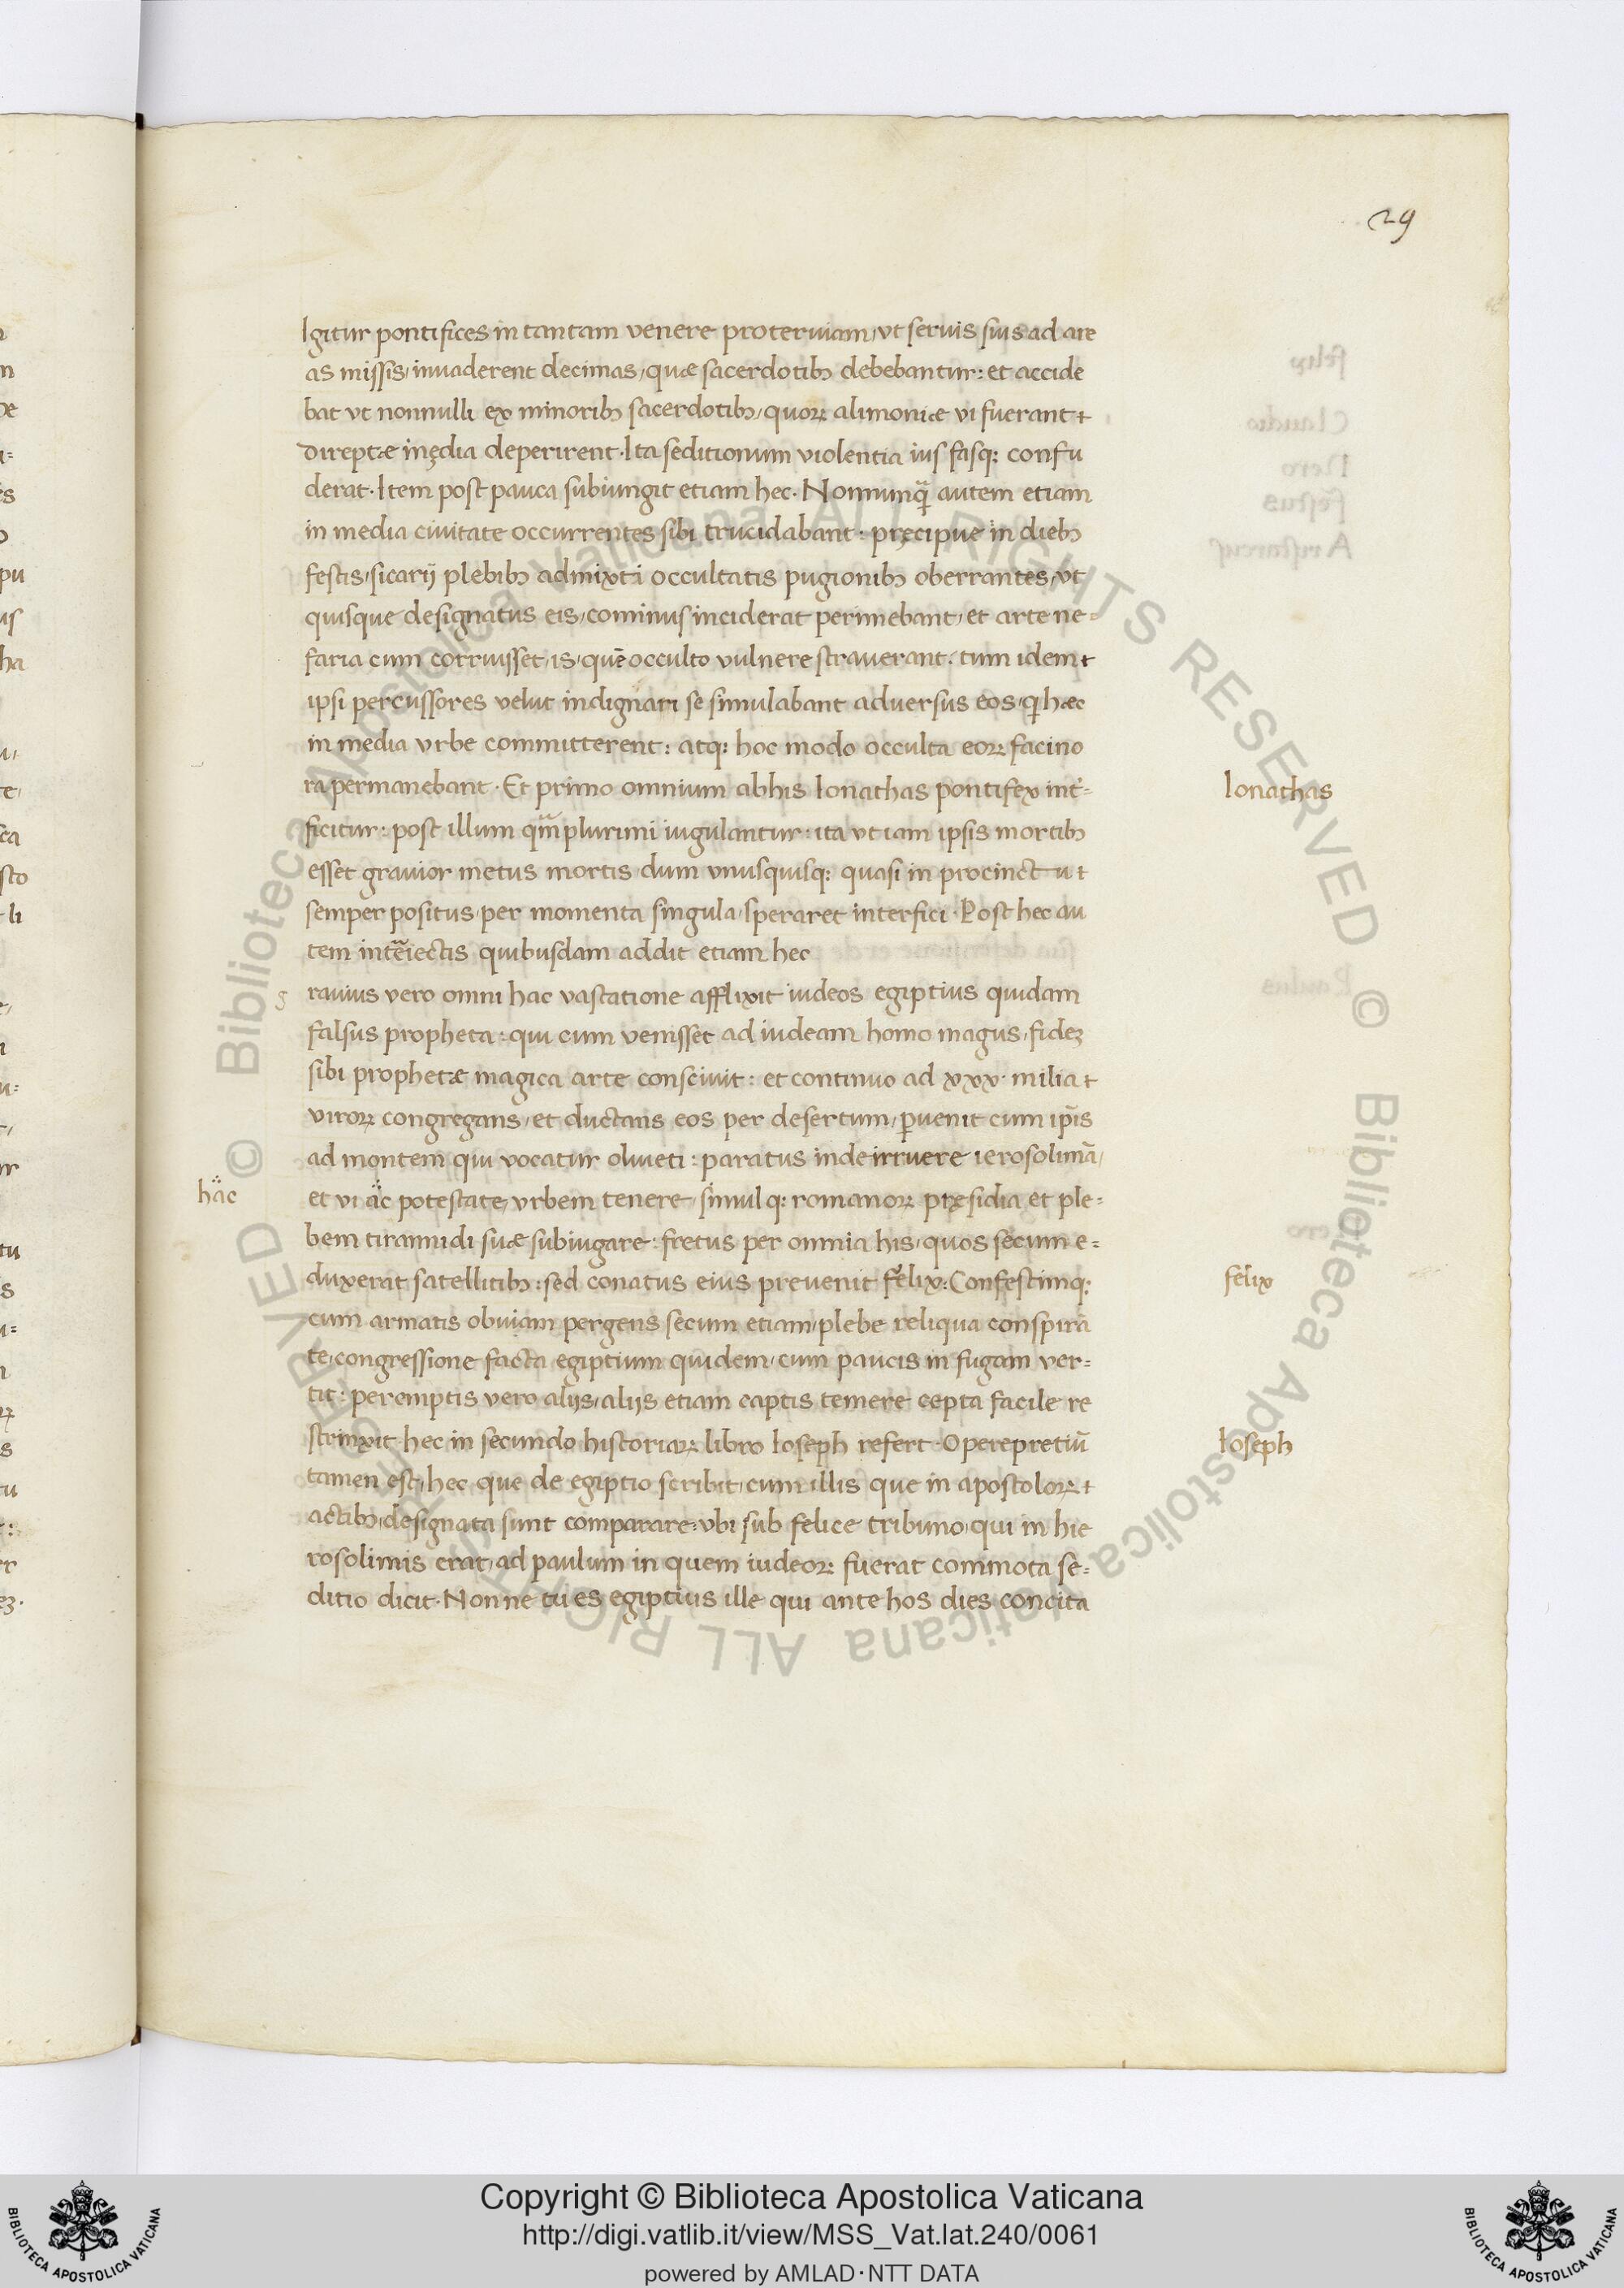 29
Igitur pontifices in tantam venere proteruiam, vt seruis suis ad are
as missis, inuaderent decimas, quæ sacerdotibꝫ debebantur: et accide
bat vt nonnulli ex minoribꝫ sacerdotibꝫ, quoꝝ alimoniæ vi fuerant
direptæ inędia deperirent. Ita seditionum violentia ius fasqꝫ confu
derat. Item post pauca subiungit etiam hec. Nonnunqᷓ autem etiam
in media ciuitate occurrentes sibi trucidabant: pręcipue in diebꝫ
festis, sicarij plebibꝫ admixti occultatis pugionibꝫ oberrantes, vt
quisque designatus eis, cominus inciderat perimebant, et arte ne=
faria cum corruisset, is, quē occulto vulnere strauerant. tum idem
ipsi percussores velut indignari se simulabant aduersus eos, qͥ hæc
in media vrbe committerent: atqꝫ hoc modo occulta eoꝝ facino
ra permanebant. Et primo omnium ab his Ionathas pontifex int̉=
Ionathas
ficitur: post illum qᷓmplurimi iugulantur: ita vt iam ipsis mortibꝫ
esset grauior metus mortis, dum vnusquisqꝫ quasi in procinctu
semper positus, per momenta singula, speraret interfici. Post hec au
tem inteiectis quibusdam addit etiam hec
g
rauius vero omni hac vastatione afflixit iudeos egiptius quidam
falsus propheta: qui cum venisset ad iudeam homo magus, fideꝫ
sibi prophetæ magica arte consciuit: et continuo ad xxx. milia
viroꝝ congregans, et ductans eos per desertum, ꝑuenit cum ip̄is
ad montem qui vocatur oliueti: paratus inde irruere ierosolimā,
hac
et vi ac potestate, vrbem tenere, simulqꝫ romanoꝝ pręsidia et ple=
bem tirannidi suæ subiugare: fretus per omnia his, quos secum e=
duxerat satellitibꝫ: sed conatus eius preuenit felix: Confestimqꝫ
felix
cum armatis obuiam pergens secum etiam, plebe reliqua conspirā
te, congressione facta egiptium quidem, cum paucis in fugam ver=
tit: peremptis vero alijs, alijs etiam captis temere cepta facile re
strinxit. hec in secundo historiaꝝ libro Ioseph refert. Operepretiū
Ioseph
tamen est, hec que de egiptio scribit, cum illis que in apostoloꝝ
actibꝫ, designata sunt comparare, vbi sub felice tribuno, qui in hie
rosolimis erat, ad paulum in quem iudeoꝝ fuerat commota se=
ditio dicit. Nonne tu es egiptius ille qui ante hos dies concita
© Biblioteca Apostolica Vaticana ALL RIGHTS RESERVED
© Biblioteca Apostolica Vaticana ALL RIGHTS RESERVED
Copyright © Biblioteca Apostolica Vaticana
http://digi.vatlib.it/view/MSS_Vat.lat.240/0061
powered by AMLAD·NTT DATA
BIBLIOTECA APOSTOLICA VATICANA
BIBLIOTECA APOSTOLICA VATICANA